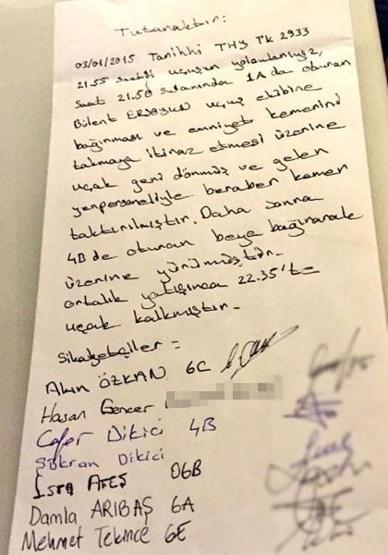 Tutanaktır:
03/01/2015 Tarihli THY TK 2933
21.55 saatli uçuşun yolcularıyız,
Saat 21.50 sularında 1A da oturan
Bülent ERSOYUN uçuş ekibine
bağırması ve emniyet kemerini
takmaya itiraz etmesi üzerine
uçak geri dönmüş ve gelen
yerpersoneliyle beraber kemer
taktırılmıştır. Daha sonra
4B de oturan beye bağırarak
üzerine yürümüştür.
ortalık yatışınca 22.35't
uçak kalkmıştır.
Şikayetçiler =
Akın ÖZKAN 6C
Hasan Gencer
Cafer Dikici 4B
Şükran Dikici
Esra ATEŞ 06B
Damla ARIBAŞ 6A
Mehmet Tekince 6E